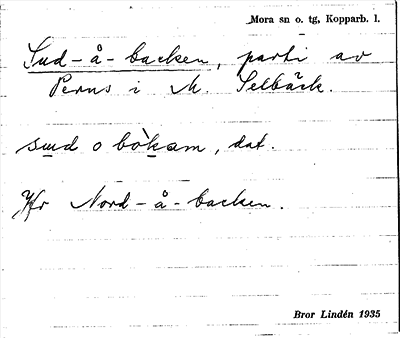 Mora sn o. tg, Kopparb. l.
Sud-å-backen, parti av
Perus i M. Selbäck.
sud o bò̀kam, dat.
Jfr Nord-å-backen.
Bror Lindén 1935